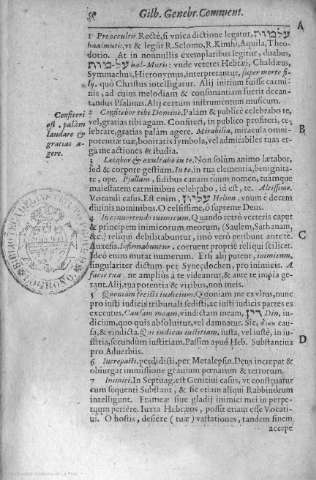 58 Gilb. Genebr. Comment.
A
1 Pro occultis. Rectè, si vnica dictione legitur, עלמות,
vt & legũt R. Selomo, R. Kimhi, Aquila, Theo-
dotio. At in nonnullis exemplaribus legitur, duabus,
vnde veteres Hebræi, Chaldæus,
Symmachus, Hieronymus, interpretantur, super morte fi-
lij, quo Christus intelligatur. Alij initium fuisse car-
minis, ad cuius melodiam & consonantiam fuerit decan-
tandus Psalmus. Alij certum instrumentum musicum.
Confiteri
est, palàm
laudare &
gratias a-
gere.
B
2 Confitebor tibi Domine. Palàm & publicè celebrabo te,
vel, gratias tibi agam. Confiteri, in publico profiteri, ce-
lebrare, gratias palàm agere. Mirabilia, miracula omni-
potentiæ tuæ, bonitatis symbola, vel admirabiles tuas er-
ga me actiones & studia.
3 Lætabor & exultabo in te. Non solùm animo lætabor,
sed & corpore gestiam. In te, in tua clementia, benignita-
te, ope. Psallam, fidibus canam tuum nomen, tuamque
maiestatem carminibus celebrabo, id est, te. Altissime.
Vocandi casus. Est enim עליון, Helion, vnum è decem
diuinis nominibus. O celsissime, ô supreme Deus.
C
4 In conuertendo inimicum. Quando retrò verteris caput
& principem inimicorum meorum, (Saulem, Sathanam,
&c.) reliqui debilitabuntur, imò verò peribunt antè te.
Auxesis. Infirmabuntur, corruent propriè reliqui scilicet.
Ideò enim mutat numerum. Ersi alij putent, inimicum,
singulariter dictum per Synecdochen, pro inimicis. A
facie tua, ne ampliùs à te videantur, & ante te impia ge-
rant. Alij, tua potentia & viribus, non meis.
D
5 Quoniam fecisti iudicium. Quoniam me ex viribus, nunc
pro iusti iudicis tribunali sedisti, ac iusti iudicis partes es
executus. Causam meam, vindictam meam, דין, Din, iu-
dicium, quo quis absoluitur, vel damnatur. Sic, dein cau-
sa, & vindicta. Qui iudicas iustitiam, iustè, vel iustè, in iu-
stitia, secundum iustitiam. Passim apud Heb. Substantiua
pro Aduerbiis.
6 Increpasti, perdidisti, per Metalepsin. Deus increpat &
obiurgat immissione grauium pœnarum & terrorum.
7 Inimici. In Septuag. est Genitiui casus, vt construatur
cum sequenti Substant. & sic etiam alioni Rabbinorum
intelligunt. Frameæ siue gladij inimici mei in perpe-
tuum periêre. Iuxta Hebræos, possit etiam esse Vocati-
ui. O hostis, desiêre (tuæ) vastationes, tandem finem
accepe